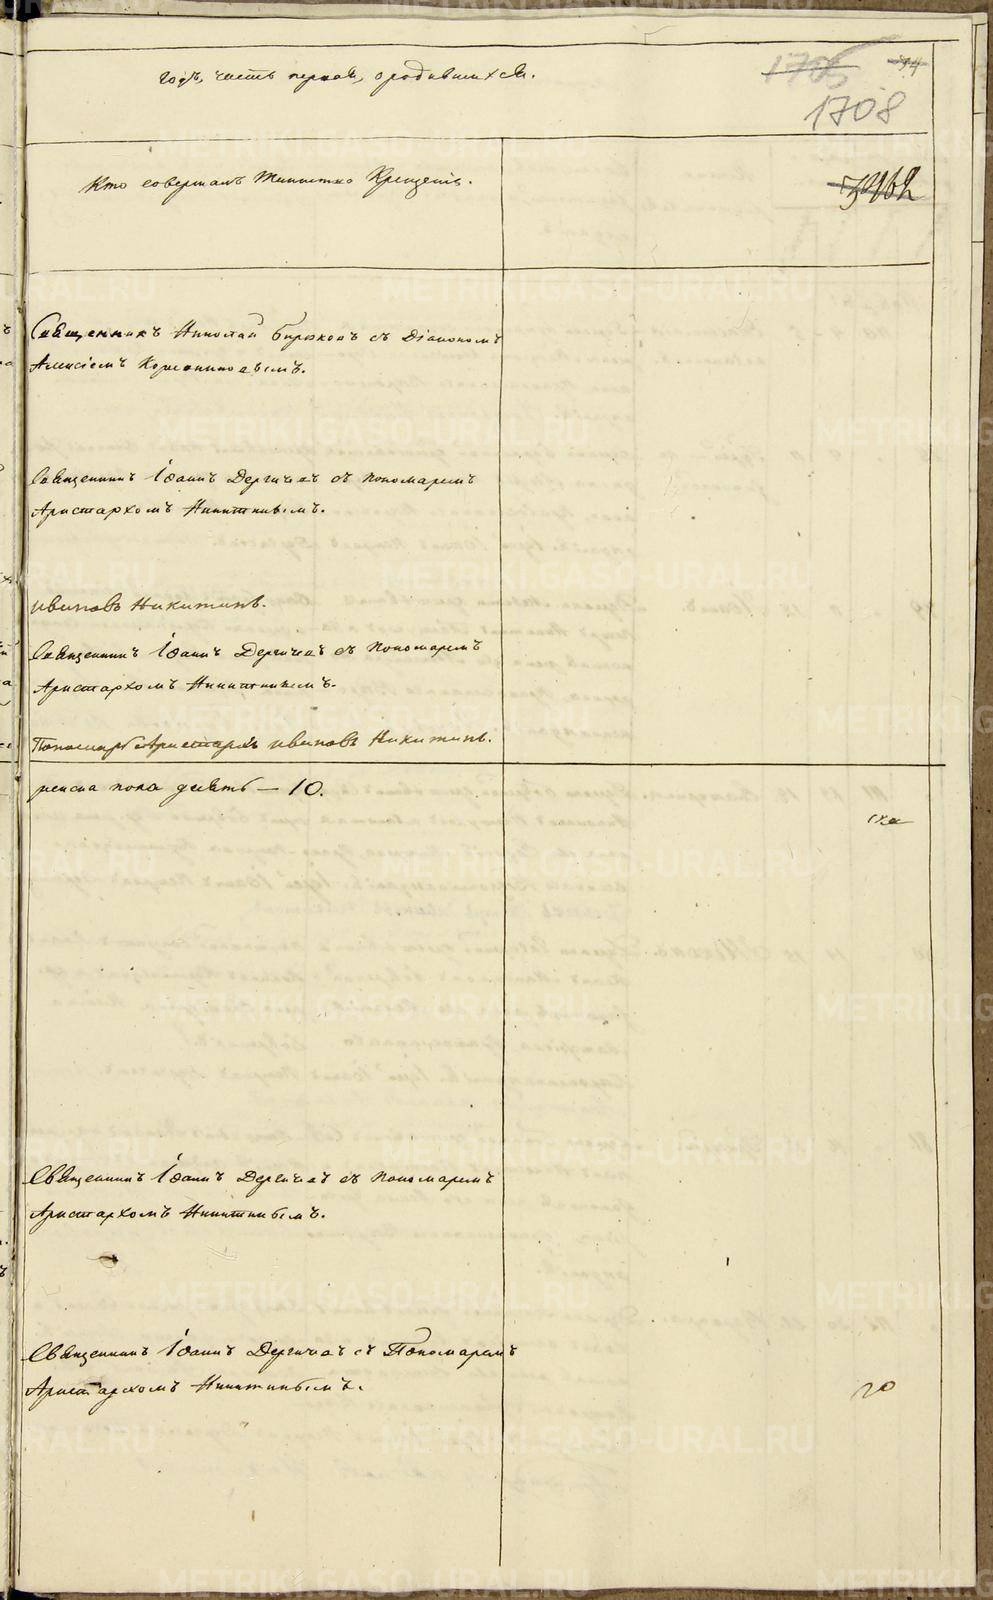 годъ, часть первая, о родившихся.
1705 94
1708
Кто совершалъ Таинство Крещенія.
Священникъ Николай Бирюковъ съ Діакономъ
Алексіемъ
Священникъ Іоаннъ Дергачевъ съ пономаремъ
Аристархомъ Никитинымъ.
Ивановъ Никитинъ.
Священникъ Іоаннъ Дергачевъ съ Пономаремъ
Аристархомъ Никитинымъ.
Пономарь Аристархъ Ивановъ Никитинъ.
пола девять — 10.
Священникъ Іоаннъ Дергачевъ съ Пономаремъ
Аристархомъ Никитинымъ.
Священникъ Іоаннъ Дергачевъ съ Пономаремъ
Аристархомъ Никитинымъ.
METRIKI.GASO-URAL.RU